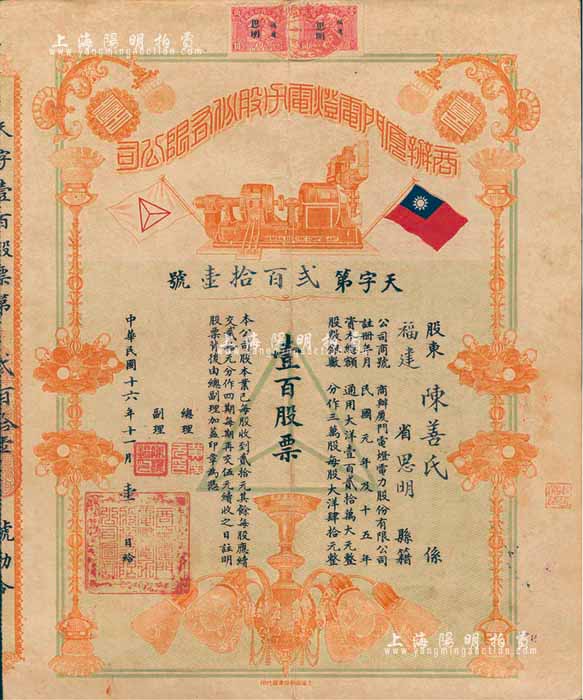 上海陽明拍賣
www.yangmingauction.com
廈門
思明
廈門
思明
商辦廈門電燈電力股份有限公司
天字第 貳百拾壹 號
股東 陳善氏 係
福建 省思明 縣籍
公司商號 商辦廈門電燈電力股份有限公司
註冊年月 民國元年及十五年
資本總額 通用大洋壹百貳拾萬大元整
股份銀數 分作三萬股每股大洋肆拾元整
壹百股票
本公司股本業已每股收到貳拾元其餘每股應繳
交貳拾元分作四期每期再交伍元續收之日註明
股票背後由總副理加蓋印章為憑
總理
副理
中華民國十六年十一月 壹 日給
天字壹百股票第 貳百拾壹 號
上海陽明拍賣
www.yangmingauction.com
上海陽明拍賣
www.yangmingauction.com